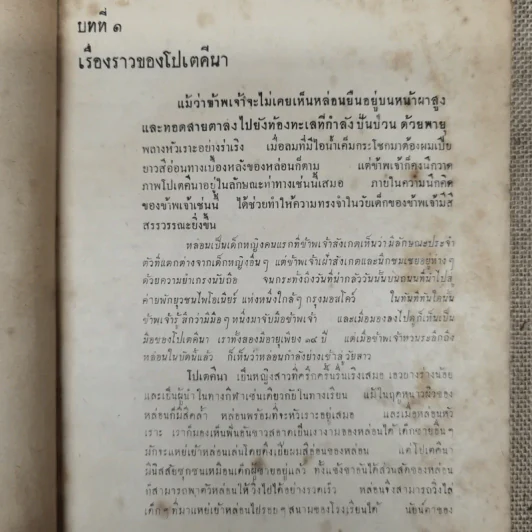 บทที่ ๑
เรื่องราวของโปเตคีนา
แม้ว่าข้าพเจ้าจะไม่เคยเห็นหล่อนยืนอยู่บนหน้าผาสูง
และทอดสายตาลงไปยังท้องทะเลที่กำลังปั่นป่วน ด้วยพายุ
พลางหัวเราะอย่างร่าเริง เมื่อลมที่มีไอน้ำเค็มกระโชกมาต้องผมเปีย
ยาวสีอ่อนทางเบื้องหลังของหล่อนก็ตาม แต่ข้าพเจ้าก็คงนึกวาด
ภาพโปเตคีนาอยู่ในลักษณะท่าทางเช่นนี้เสมอ ภายในความนึกคิด
ของข้าพเจ้าเช่นนี้ ได้ช่วยทำให้ความทรงจำในวัยเด็กของข้าพเจ้ามีสี
สรรวรรณะยิ่งขึ้น
หล่อนเป็นเด็กหญิงคนแรกที่ข้าพเจ้าสังเกตเห็นว่า มีลักษณะประจำ
ตัวที่แตกต่างจากเด็กหญิงอื่นๆ แต่ข้าพเจ้าเฝ้าสังเกตและนึกชมเชยอยู่ห่างๆ
ด้วยความยำเกรงนับถือ จนกระทั่งถึงวันที่น่ากลัววันนั้นบนถนนที่นำไปสู่
ค่ายพักยุวชนไพโอเนียร์ แห่งหนึ่งใกล้ๆ กรุงมอสโคว์ ในทันทีทันใดนั้น
ข้าพเจ้ารู้สึกว่ามีมือๆ หนึ่งมาจับมือข้าพเจ้า และเมื่อมองลงไปดูก็เห็นเป็น
มือของโปเตคีนา เราทั้งสองมีอายุเพียง ๑๔ ปี แต่เมื่อข้าพเจ้าหวนระลึกถึง
หล่อนในบัดนั้นแล้ว ก็เห็นว่าหล่อนกำลังย่างเข้าสู่วัยสาว
โปเตคีนา เป็นหญิงสาวที่คึกครื้นรื่นเริงเสมอ เอวบางร่างน้อย
และเป็นผู้นำในทางกีฬาเช่นเดียวกับในทางเรียน แม้ในฤดูหนาวผิวของ
หล่อนก็มีสีคล้ำ หล่อนพร้อมที่จะหัวเราะอยู่เสมอ และเมื่อหล่อนหัว
เราะ เราก็มองเห็นฟันอันขาวสอาดเป็นเงางามของหล่อนได้ เด็กชายอื่นๆ
มักจะแหย่เย้าหล่อนเล่นโดยดึงเปียผมสีอ่อนของหล่อน แต่โปเตคีนา
มีนิสสัยซุกซนเหมือนเด็กผู้ชายอยู่แล้ว ทั้งแข้งขาอันได้ส่วนสัดของหล่อน
ก็สามารถพาตัวหล่อนให้วิ่งไปได้อย่างรวดเร็ว หล่อนจึงสามารถวิ่งไล่
เด็กๆ ที่มาแหย่เย้าหล่อนไปรอบๆ สนามของโรงเรียนได้ นัยน์ตาของ